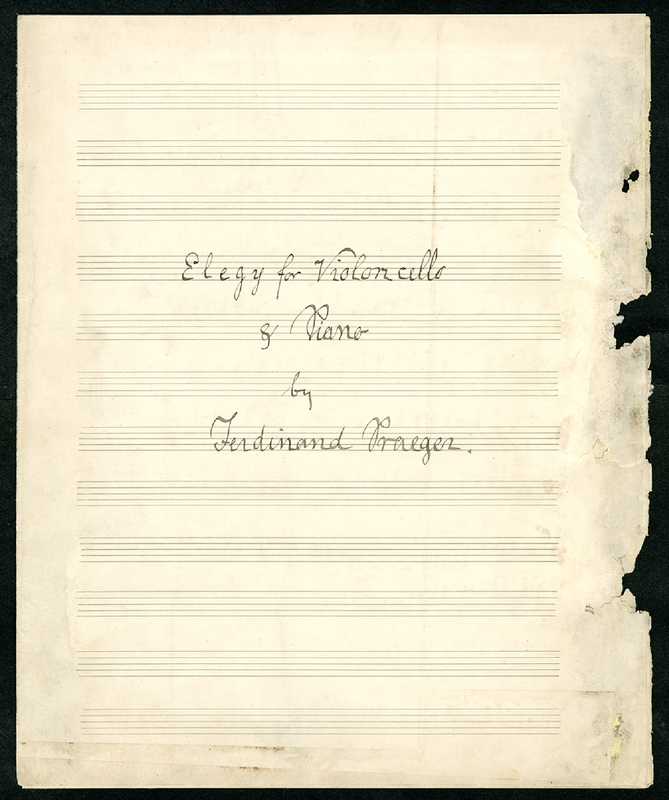 Elegy for Violoncello
& Piano
by
Ferdinand Praeger.